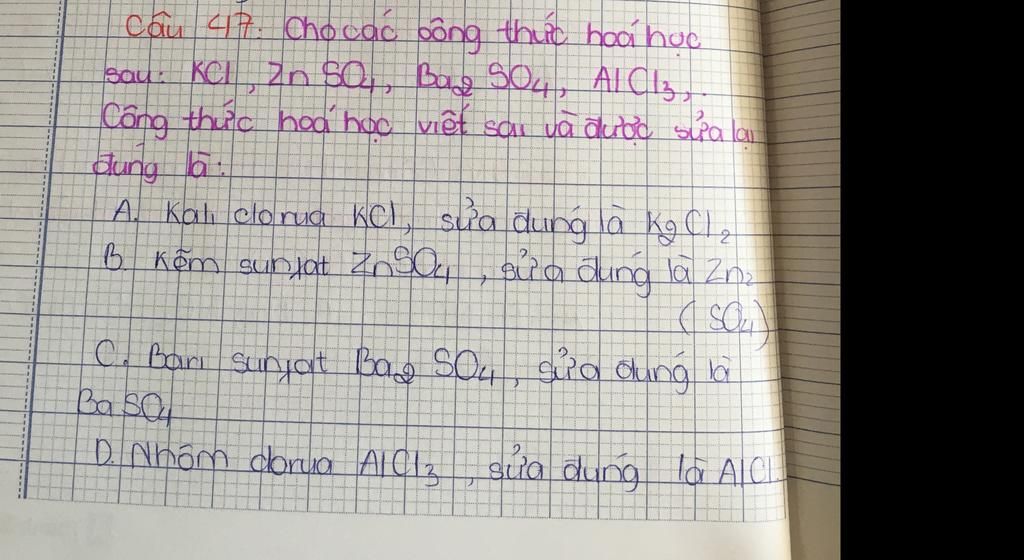 Câu 47: Cho các công thức hoá học
sau: KCl, ZnSO4, Ba2SO4, AlCl3,.
Công thức hoá học viết sau và được sửa lại
đúng là:
A. Kali clorua KCl, sửa đúng là K2Cl2
B. Kẽm sunfat ZnSO4, sửa đúng là Zn2
(SO4)
C. Bari sunfat Ba2SO4, sửa đúng là
BaSO4
D. Nhôm clorua AlCl3, sửa đúng là AlCl